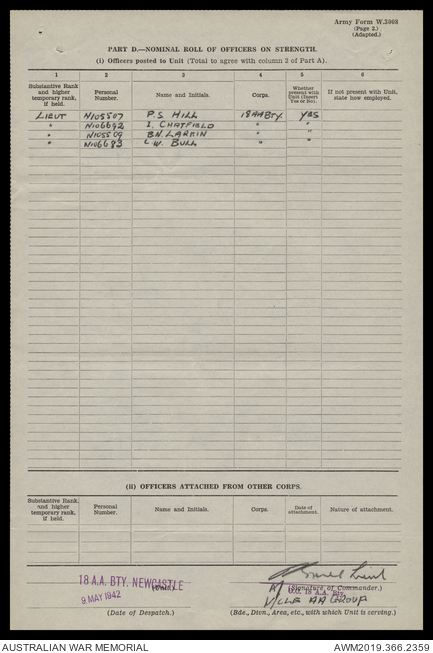 Army Form W.3008
(Page 2.)
(Adapted.)
PART D.—NOMINAL ROLL OF OFFICERS ON STRENGTH.
(i) Officers posted to Unit (Total to agree with column 2 of Part A).
1 2 3 4 5 6
Substantive Rank and higher temporary rank, if held. Personal Number. Name and Initials. Corps. Whether present with Unit (Insert Yes or No). If not present with Unit, state how employed.
LIEUT N105507 P.S. HILL 18AABTY. YES
" N106692 I. CHATFIELD " "
" N105509 B.N. LARKIN " "
" N106683 C.W. BULL " "
(ii) OFFICERS ATTACHED FROM OTHER CORPS.
Substantive Rank and higher temporary rank, if held. Personal Number. Name and Initials. Corps. Date of attachment. Nature of attachment.
18 A.A. BTY. NEWCASTLE
(Unit.)
9 MAY 1942
(Signature of Commander.)
O.C. 18 A.A. Bty.
N/CLE AA GROUP
(Date of Despatch.)
(Bde., Divn., Area, etc., with which Unit is serving.)
AUSTRALIAN WAR MEMORIAL
AWM2019.366.2359